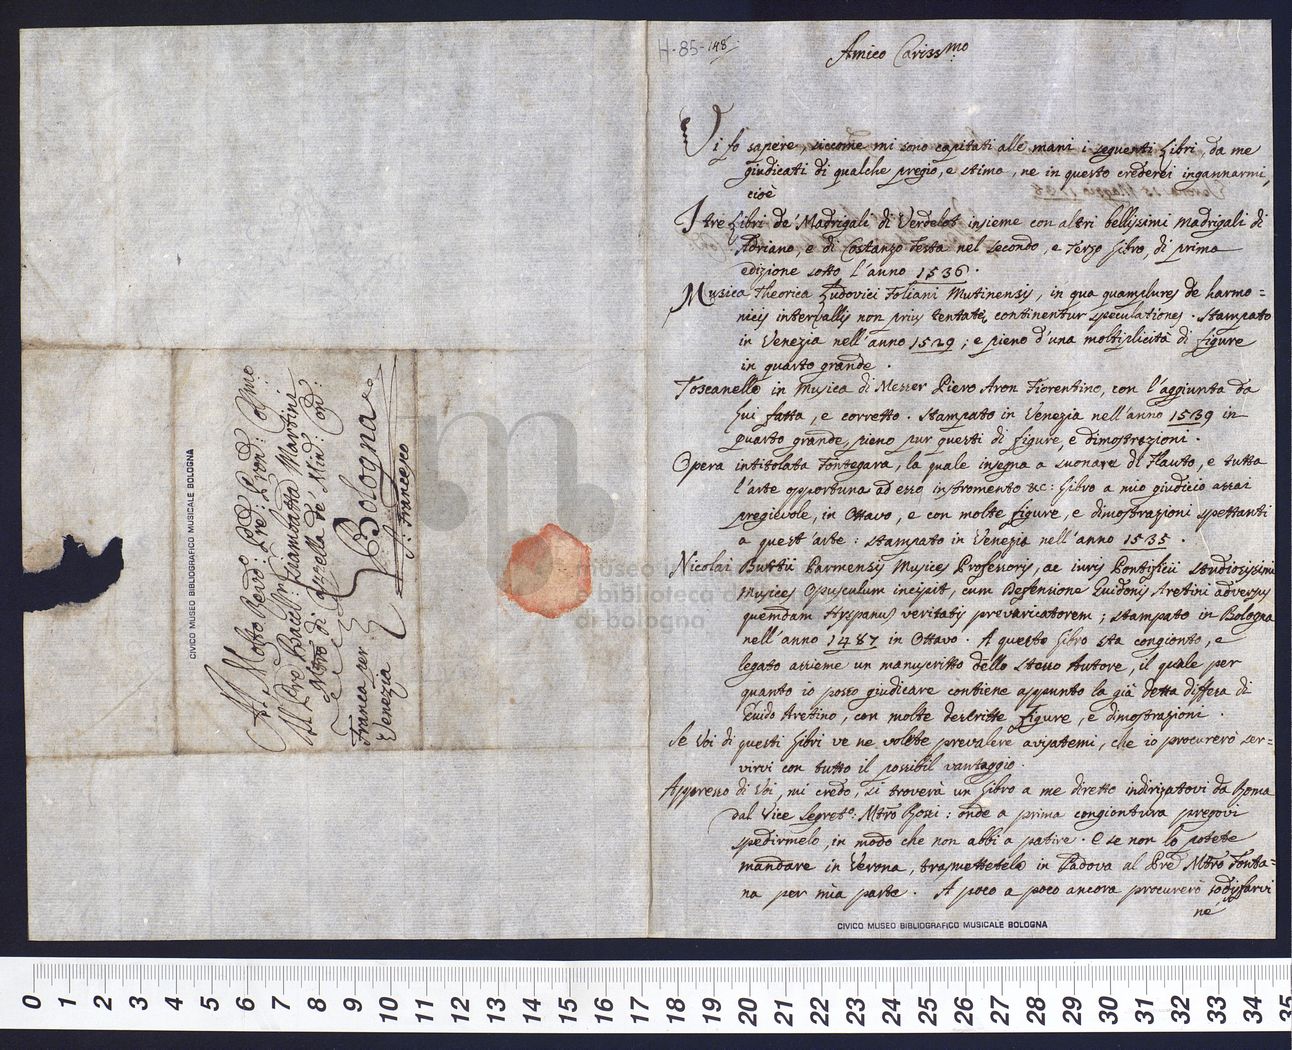 H-85-148
Amico Cariss.mo
Vi fo sapere, siccome mi sono capitati alle mani i seguenti Libri, da me
giudicati di qualche pregio, e stima, ne in questo crederei ingannarmi,
cioè
I tre Libri de' Madrigali di Verdelot insieme con altri bellissimi Madrigali di
Adriano, e di Costanzo Festa nel secondo, e terzo Libro, di prima
edizione sotto l'anno 1536.
Musica Theorica Ludovici Foliani Mutinensis, in qua quamplures de harmo=
nicis intervallis non prius tentatę continentur speculationes. Stampato
in Venezia nell'anno 1529; e pieno d'una moltiplicità di figure
in quarto grande.
Toscanello in Musica di Messer Piero Aron Fiorentino, con l'aggiunta da
Lui fatta, e corretto. Stampato in Venezia nell'anno 1539 in
quarto grande, pieno pur questi di figure, e dimostrazioni.
Opera intitolata Fontegara, la quale insegna a suonare di Flauto, e tutta
l'arte opportuna ad esso instromento &c: Libro a mio giudicio assai
pregievole, in Ottavo, e con molte figure, e dimostrazioni spettanti
a quest'arte: stampato in Venezia nell'anno 1535.
Nicolai Burtii Parmensis Musices Professoris, ac iuris Pontificii studiosissimi
Musices Opusculum incipit, cum Defensione Guidonis Aretini adversus
quemdam Hyspanus veritatis prevaricatorem; stampato in Bologna
nell'anno 1487 in Ottavo. A questo Libro sta congionto, e
legato assieme un manuscritto dello stesso Autore, il quale per
quanto io posso giudicare contiene appunto la già detta diffesa di
Guido Aretino, con molte descritte figure, e dimostrazioni.
Se Voi di questi Libri ve ne volete prevalere avisatemi, che io procurerò ser=
virvi con tutto il possibil vantaggio.
Appreso di Voi, mi credo, si troverà un Libro a me diretto indirizatovi da Roma
dal Vice Segret.o: Mtro Bosi: onde a prima congiontura pregovi
spedirmelo, in modo che non abbi a patire. E se non lo potete
mandare in Verona, trasmettetelo in Padova al Pre Mtro Fonta=
na per mia parte. A poco a poco ancora procurerò sodisfarvi
ne
CIVICO MUSEO BIBLIOGRAFICO MUSICALE BOLOGNA
Al Molto Revdo: Pre: Pron: Colmo
Il Pre Bacel: Giambatta Martini
Mtro di Capella de' Min: Con:
Bologna
S. Francesco
Franca per
Venezia
CIVICO MUSEO BIBLIOGRAFICO MUSICALE BOLOGNA
museo
e biblioteca
di bologna
0 1 2 3 4 5 6 7 8 9 10 11 12 13 14 15 16 17 18 19 20 21 22 23 24 25 26 27 28 29 30 31 32 33 34 35